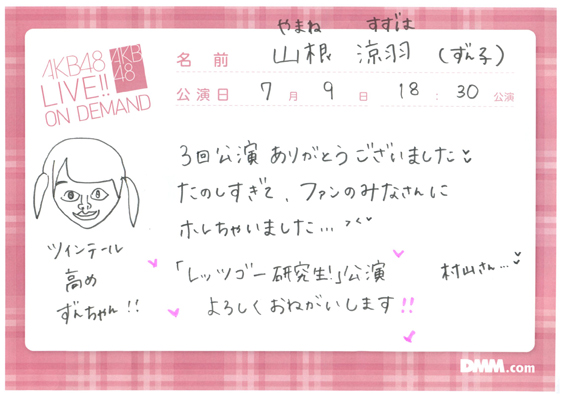 やまね すずは
AKB48
LIVE!!
ON DEMAND
AKB
48
名前 山根 涼羽 (ずん子)
公演日 7月9日 18:30公演
3回公演 ありがとうございました
たのしすぎて、ファンのみなさんに
ホレちゃいました...
ツインテール
高め
ずんちゃん!!
「レッツゴー研究生!」公演
村山さん...
よろしくおねがいします!!
DMM.com